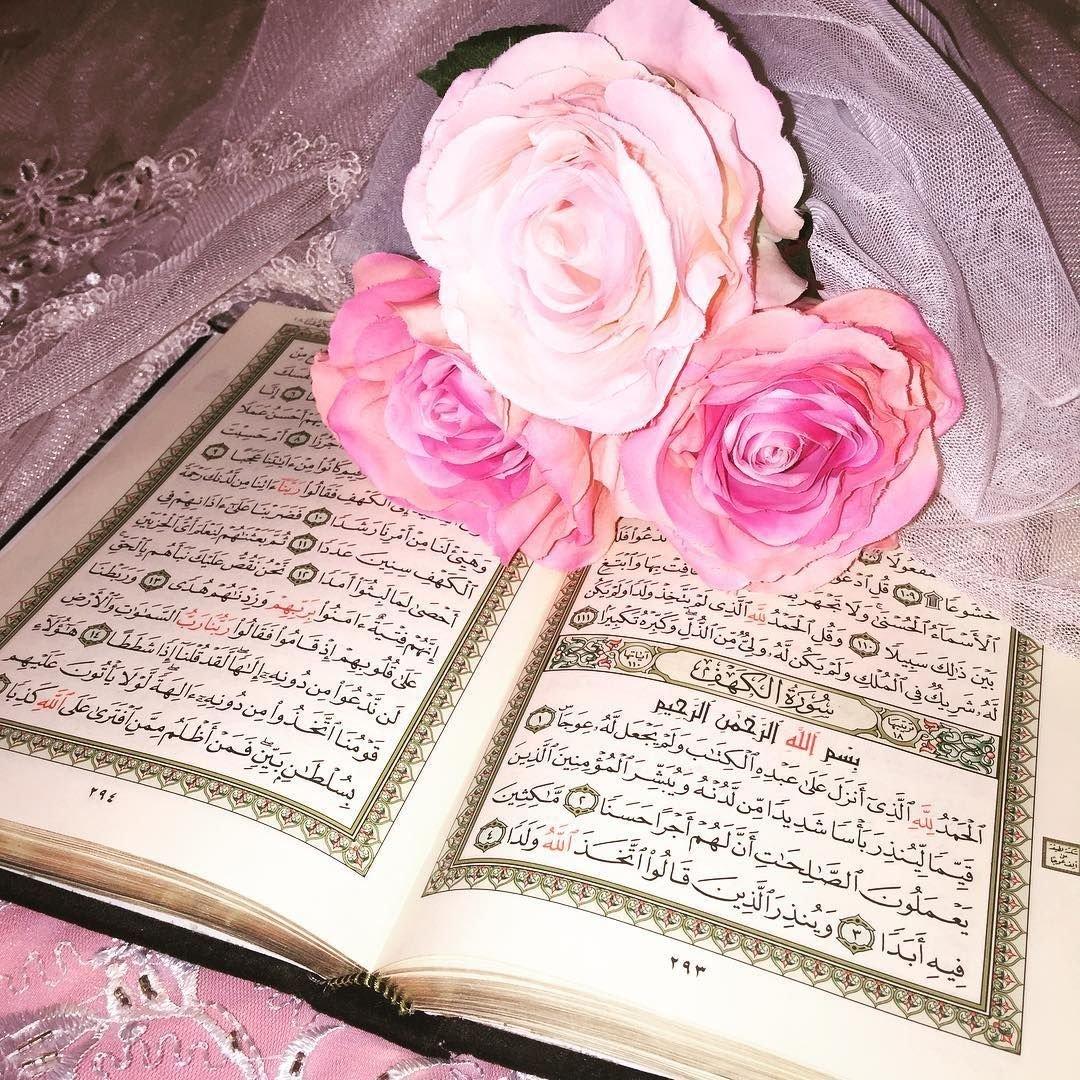 مَفْعُولًا ١٠٨
خُشُوعًا ۩ ١٠٩ قُلِ ٱدْعُوا۟ ٱدْعُوا۟
ٱلْأَسْمَآءُ ٱلْحُسْنَىٰ وَلَا تَجْهَرْ بِهَا وَٱبْتَغِ
بَيْنَ ذَٰلِكَ سَبِيلًا ١١٠ وَقُلِ ٱلْحَمْدُ لِلَّهِ ٱلَّذِى لَمْ يَتَّخِذْ وَلَدًا وَلَمْ يَكُن
لَّهُۥ شَرِيكٌ فِى ٱلْمُلْكِ وَلَمْ يَكُن لَّهُۥ وَلِىٌّ مِّنَ ٱلذُّلِّ وَكَبِّرْهُ تَكْبِيرًۢا ١١١
سُورَةُ الكَهْفِ
بِسْمِ ٱللَّهِ ٱلرَّحْمَٰنِ ٱلرَّحِيمِ
ٱلْحَمْدُ لِلَّهِ ٱلَّذِىٓ أَنزَلَ عَلَىٰ عَبْدِهِ ٱلْكِتَٰبَ وَلَمْ يَجْعَل لَّهُۥ عِوَجَا ۜ ١
قَيِّمًا لِّيُنذِرَ بَأْسًا شَدِيدًا مِّن لَّدُنْهُ وَيُبَشِّرَ ٱلْمُؤْمِنِينَ ٱلَّذِينَ
يَعْمَلُونَ ٱلصَّٰلِحَٰتِ أَنَّ لَهُمْ أَجْرًا حَسَنًا ٢ مَّٰكِثِينَ
فِيهِ أَبَدًا ٣ وَيُنذِرَ ٱلَّذِينَ قَالُوا۟ ٱتَّخَذَ ٱللَّهُ وَلَدًا ٤
٢٩٣
إِنَّا
أَحْسَنُ عَمَلًا
جُرُزًا ٨ أَمْ حَسِبْتَ
كَانُوا۟ مِنْ ءَايَٰتِنَا عَجَبًا ٩
ٱلْكَهْفِ فَقَالُوا۟ رَبَّنَآ ءَاتِنَا مِن لَّدُنكَ رَحْمَةً
وَهَيِّئْ لَنَا مِنْ أَمْرِنَا رَشَدًا ١٠ فَضَرَبْنَا عَلَىٰٓ ءَاذَانِهِمْ فِى
ٱلْكَهْفِ سِنِينَ عَدَدًا ١١ ثُمَّ بَعَثْنَٰهُمْ لِنَعْلَمَ أَىُّ ٱلْحِزْبَيْنِ
أَحْصَىٰ لِمَا لَبِثُوٓا۟ أَمَدًا ١٢ نَّحْنُ نَقُصُّ عَلَيْكَ نَبَأَهُم بِٱلْحَقِّ
إِنَّهُمْ فِتْيَةٌ ءَامَنُوا۟ بِرَبِّهِمْ وَزِدْنَٰهُمْ هُدًى ١٣ وَرَبَطْنَا
عَلَىٰ قُلُوبِهِمْ إِذْ قَامُوا۟ فَقَالُوا۟ رَبُّنَا رَبُّ ٱلسَّمَٰوَٰتِ وَٱلْأَرْضِ
لَن نَّدْعُوَا۟ مِن دُونِهِۦٓ إِلَٰهًا لَّقَدْ قُلْنَآ إِذًا شَطَطًا ١٤ هَٰٓؤُلَآءِ
قَوْمُنَا ٱتَّخَذُوا۟ مِن دُونِهِۦٓ ءَالِهَةً لَّوْلَا يَأْتُونَ عَلَيْهِم
بِسُلْطَٰنٍۭ بَيِّنٍ فَمَنْ أَظْلَمُ مِمَّنِ ٱفْتَرَىٰ عَلَى ٱللَّهِ كَذِبًا
٢٩٤